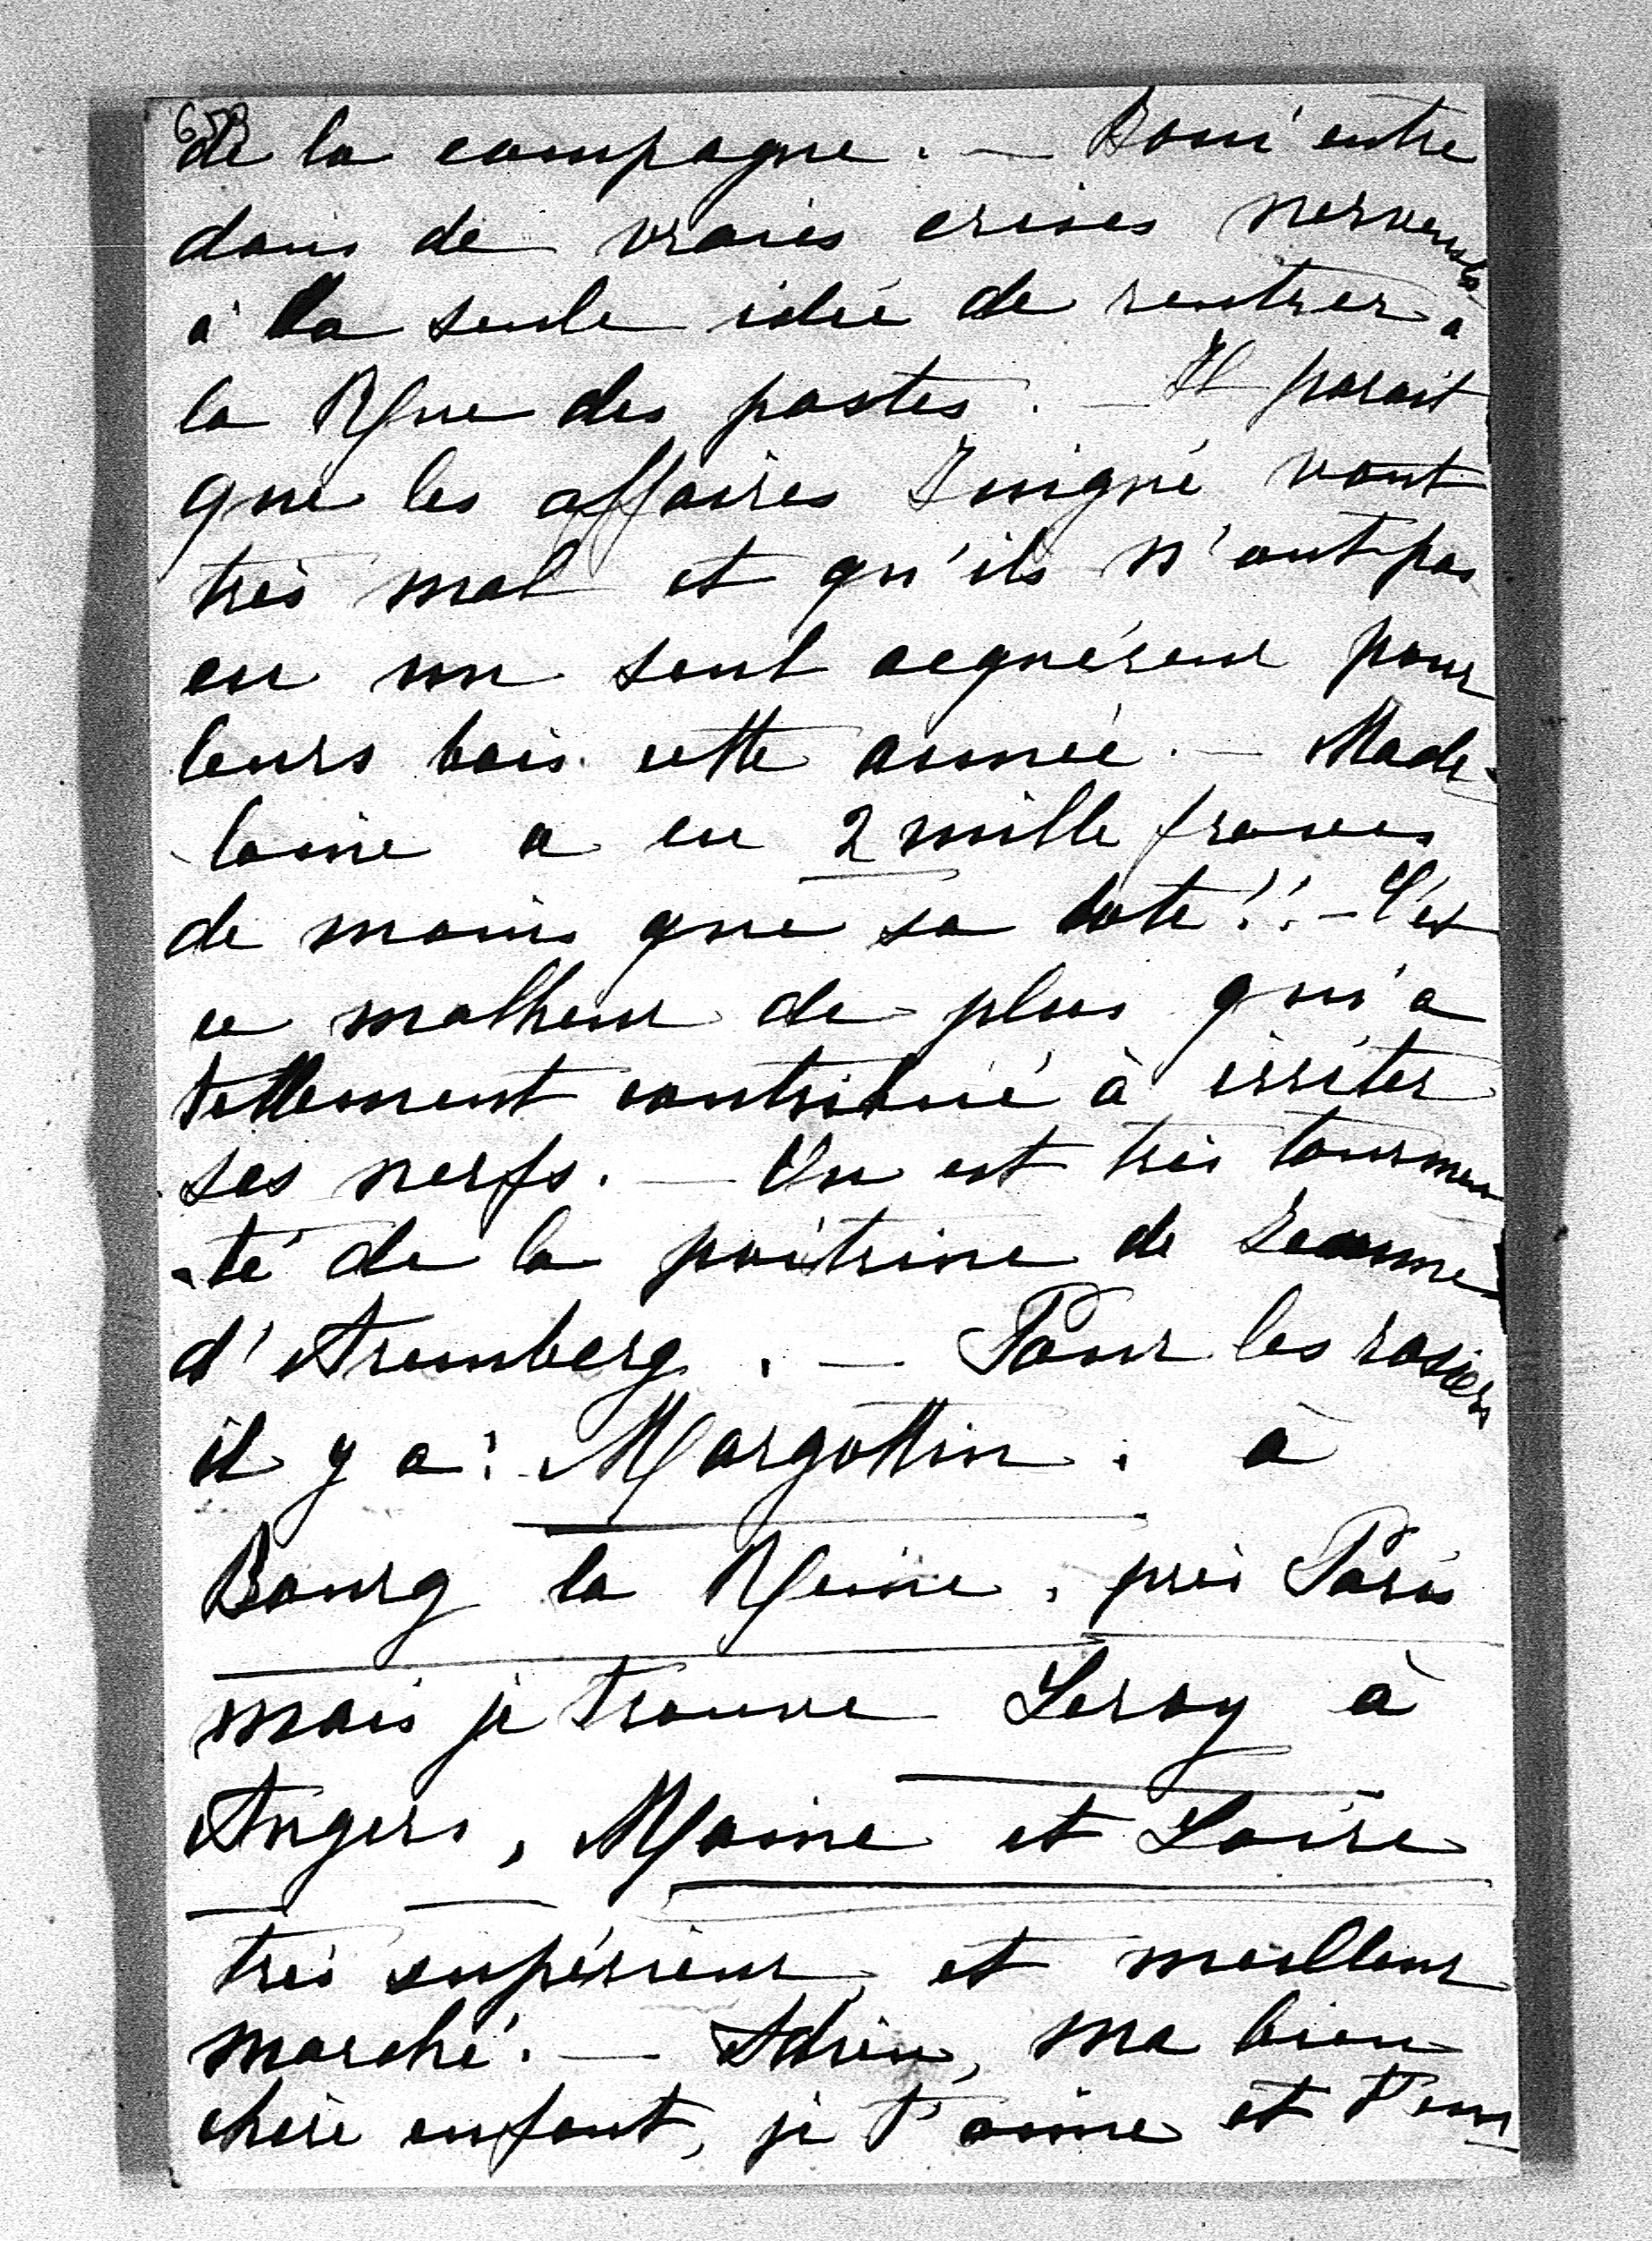 de la campagne. — Boni entre
dans de vraies crises nerveuses
à la seule idée de rentrer à
la Rue des postes. — Il parait
que les affaires Juigné vont
très mal et qu'ils n'ont pas
eu un seul acquéreur pour
leurs bois cette année. — Made-
laine a eu 2 mille francs
de moins que sa dote!! — C'est
ce malheur de plus qui a
tellement contribué à irriter
ses nerfs. — On est très tourmen
-té de la poitrine de Jeanne
d'Aremberg. — Pour les rosiers
il y a : Margottin. à
Bourg la Reine. près Paris
mais je trouve Leroy à
Angers, Maine et Loire
très supérieur et meilleur
marché. — Adieu, ma bien
chère enfant, je t'aime et t'em